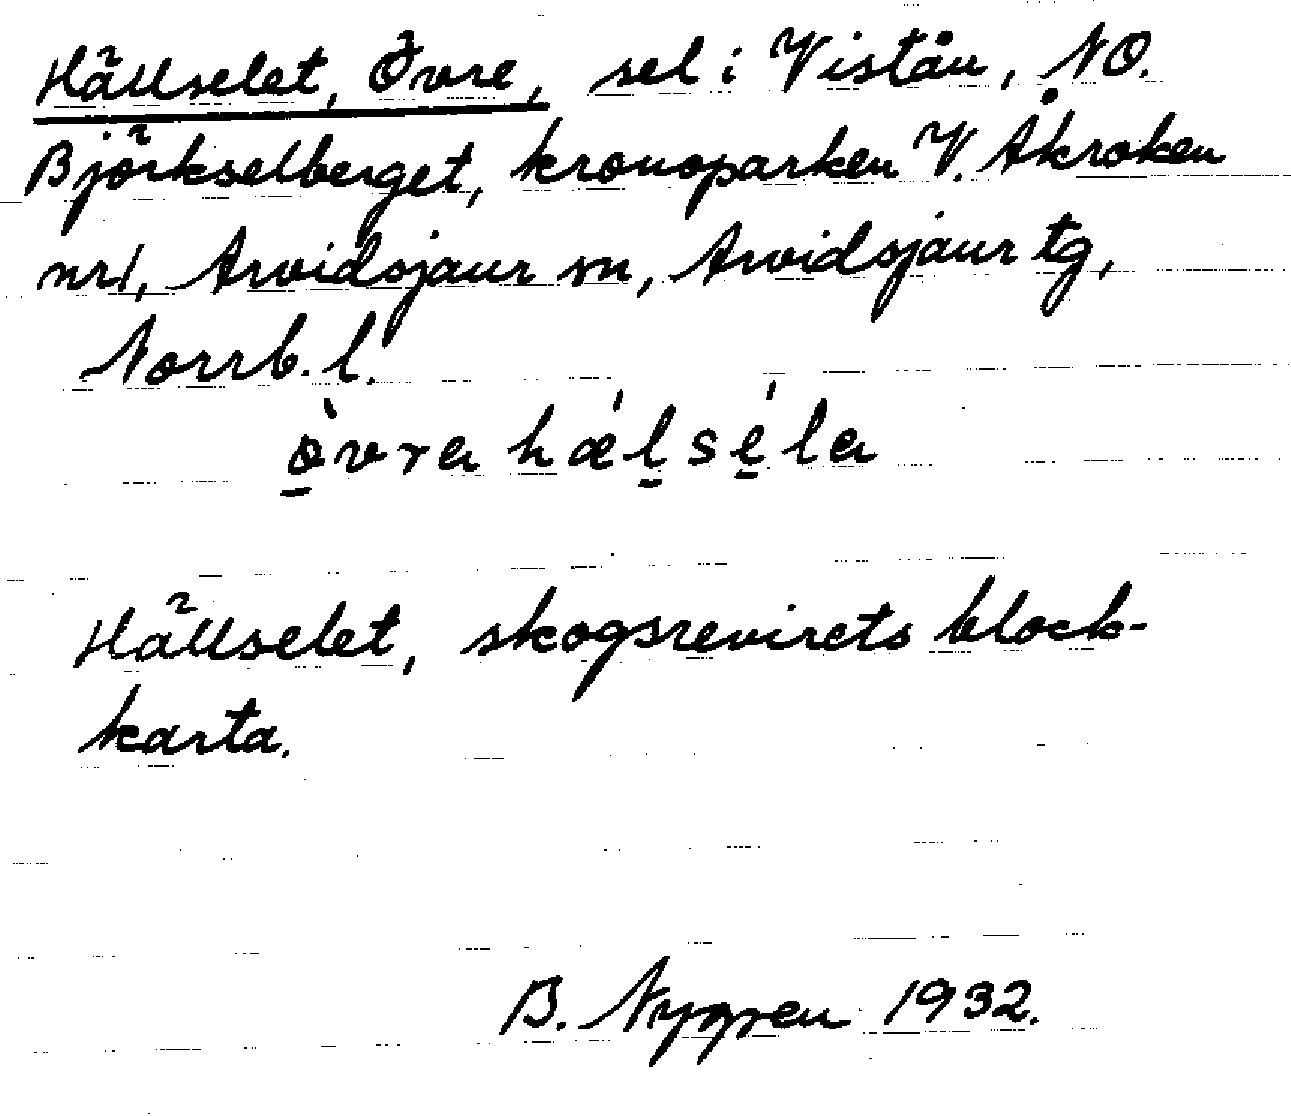 Hällselet, Övre, sel i Viståu, NO.
Björkselberget, kronoparken V. Åkroken
nr1, Arvidsjaur sn, Arvidsjaur tg,
Norrb. l.
ò̱vra hǽḻsé̱la
Hällselet, skogsrevirets block-
karta.
B. Nygren 1932.